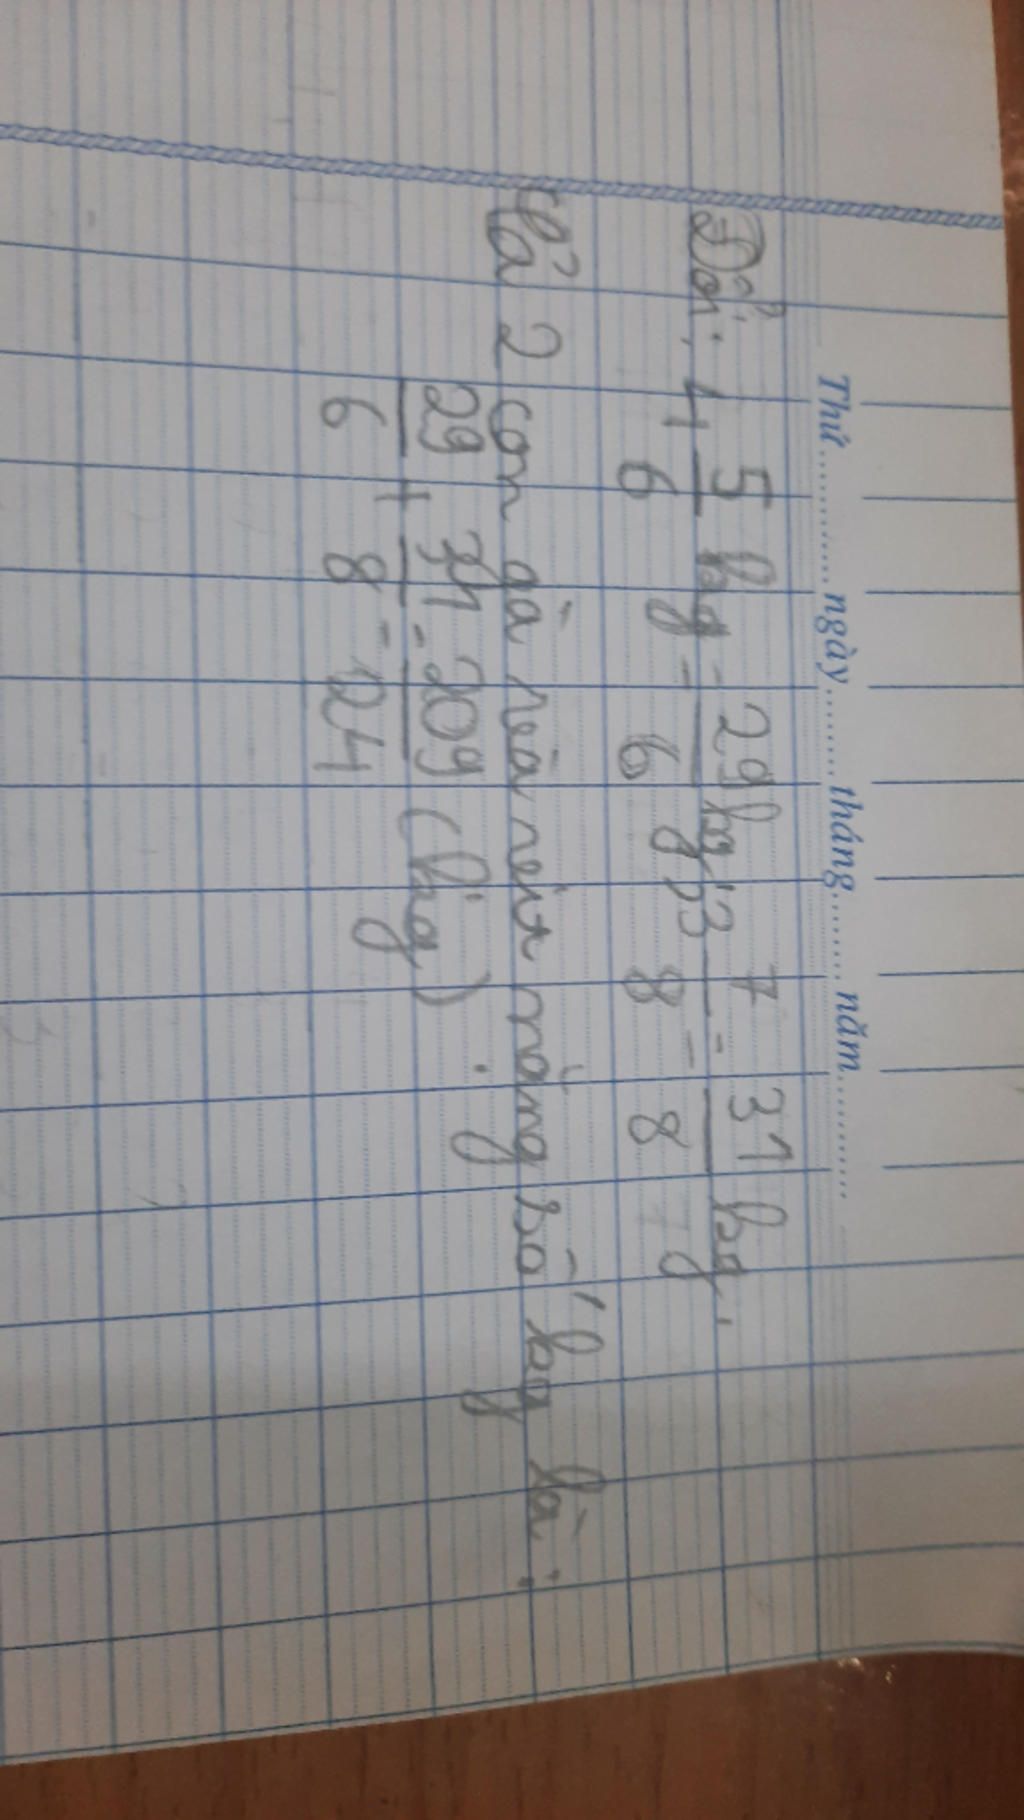 Thứ............ngày..........tháng..........năm..............
Đổi: 4 5/6 kg = 29/6 kg; 3 7/8 = 31/8 kg.
Cả 2 con gà và vịt nặng số kg là:
29/6 + 31/8 = 209/24 (kg).